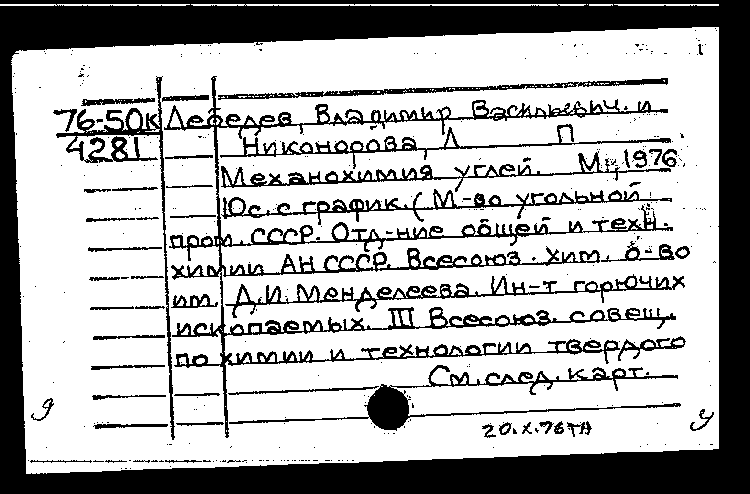 76-50к Лебедев, Владимир Васильевич. и
4281 Никонорова, Л П
Механохимия углей. М., 1976
10с. с график. (М-во угольной
пром. СССР. Отд-ние общей и техн.
химии АН СССР. Всесоюз. хим. о-во
им. Д.И. Менделеева. Ин-т горючих
ископаемых. III Всесоюз. совещ.
по химии и технологии твердого
См. след. карт.
20.X.76